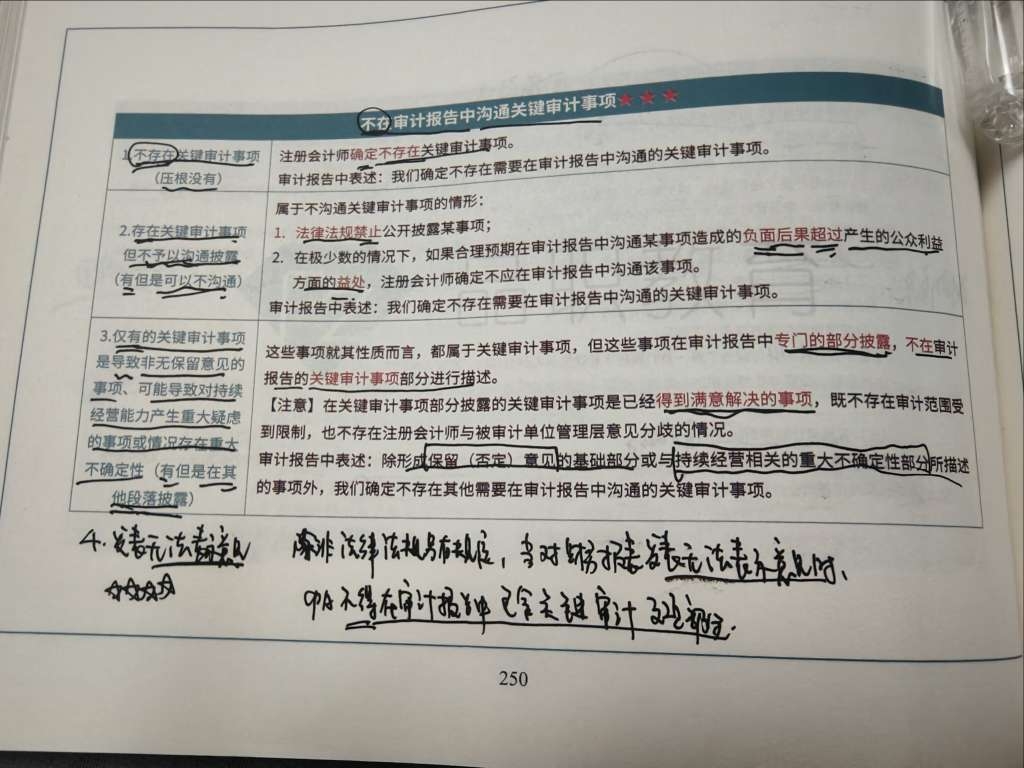 不在审计报告中沟通关键审计事项★★★
1.不存在关键审计事项
（压根没有）
注册会计师确定不存在关键审计事项。
审计报告中表述：我们确定不存在需要在审计报告中沟通的关键审计事项。
2.存在关键审计事项
但不予以沟通披露
（有但是可以不沟通）
属于不沟通关键审计事项的情形：
1. 法律法规禁止公开披露某事项；
2. 在极少数的情况下，如果合理预期在审计报告中沟通某事项造成的负面后果超过产生的公众利益
方面的益处，注册会计师确定不应在审计报告中沟通该事项。
审计报告中表述：我们确定不存在需要在审计报告中沟通的关键审计事项。
3.仅有的关键审计事项
是导致非无保留意见的
事项、可能导致对持续
经营能力产生重大疑虑
的事项或情况存在重大
不确定性（有但是在其
他段落披露）
这些事项就其性质而言，都属于关键审计事项，但这些事项在审计报告中专门的部分披露，不在审计
报告的关键审计事项部分进行描述。
【注意】在关键审计事项部分披露的关键审计事项是已经得到满意解决的事项，既不存在审计范围受
到限制，也不存在注册会计师与被审计单位管理层意见分歧的情况。
审计报告中表述：除形成保留（否定）意见的基础部分或与持续经营相关的重大不确定性部分所描述
的事项外，我们确定不存在其他需要在审计报告中沟通的关键审计事项。
4.发表无法表示意见
☆☆☆☆
除非法律法规另有规定，当对财务报表发表无法表示意见时，
CPA不得在审计报告中包含关键审计事项部分.
250